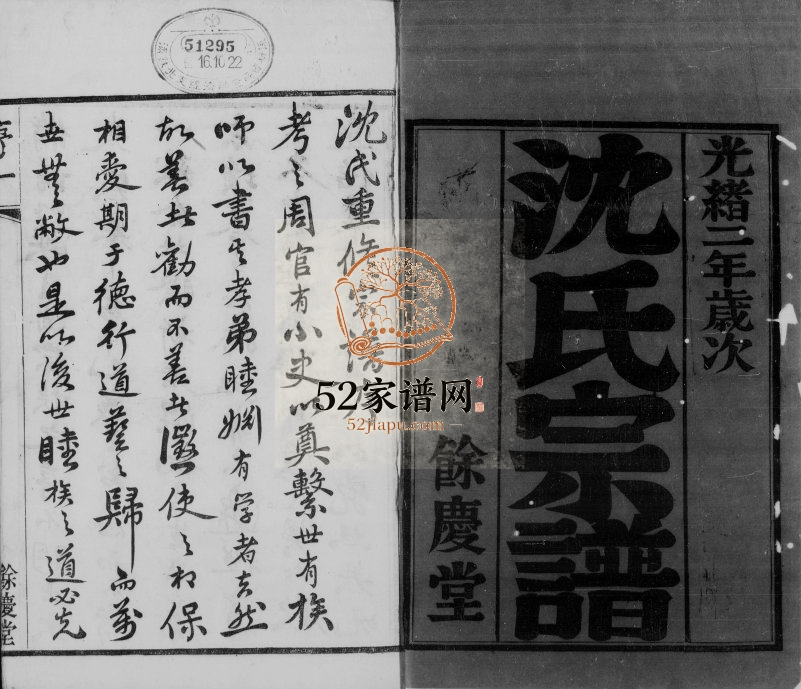 光緒二年歲次
沈氏宗譜
餘慶堂
沈氏重修宗譜
考之周官有小史以奠繫世有族
師以書其孝弟睦婣有学者夫然
故善者勸而不善者懲使之相保
相愛期于德行道藝之歸而萬
世無敝也是以後世睦族之道必先
餘慶堂
51295
16.10.22
52家谱网
52jiapu.com